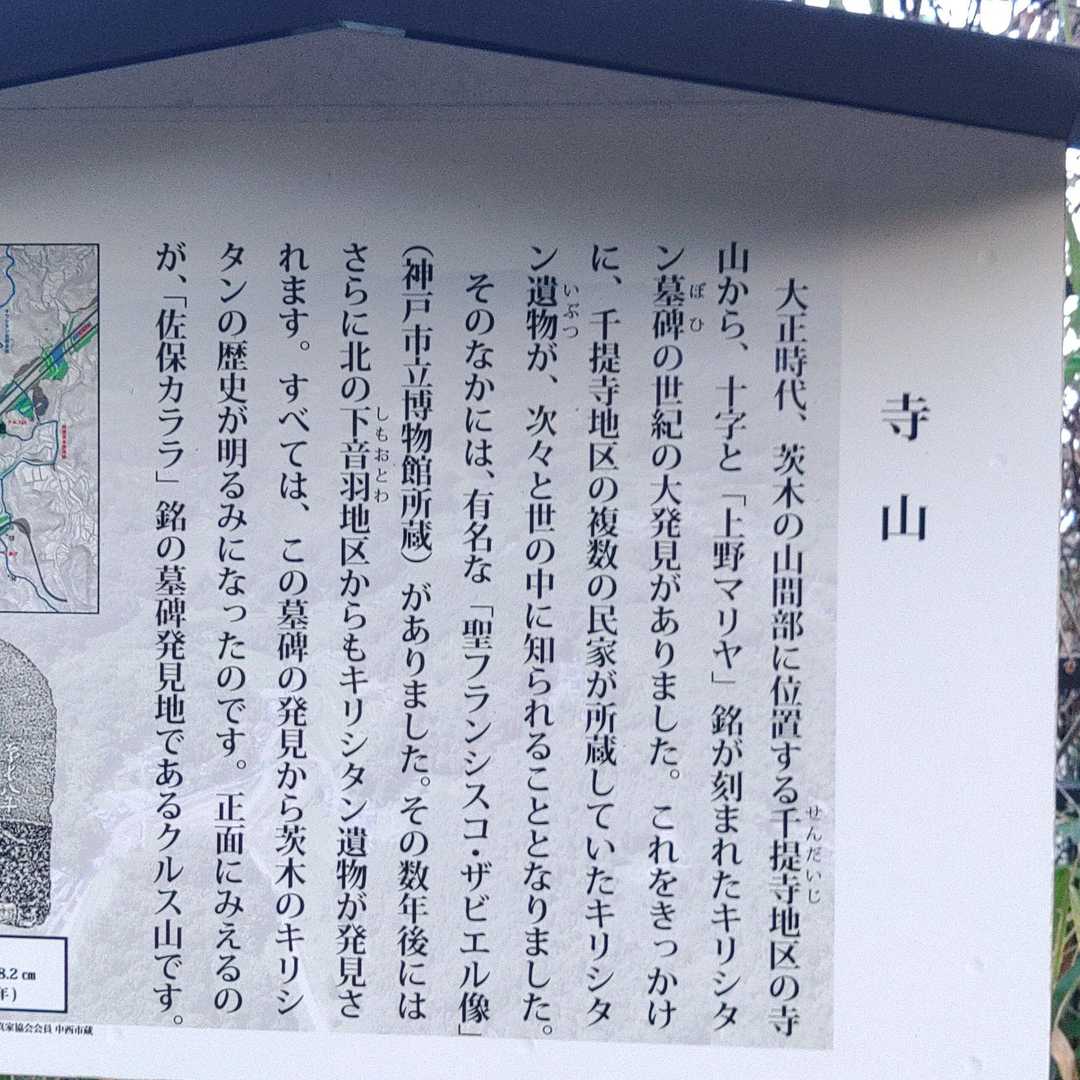 寺山
大正時代、茨木の山間部に位置する千提寺地区の寺
せんだいじ
山から、十字と「上野マリヤ」銘が刻まれたキリシタ
ン墓碑の世紀の大発見がありました。これをきっかけ
ぼひ
に、千提寺地区の複数の民家が所蔵していたキリシタ
ン遺物が、次々と世の中に知られることとなりました。
いぶつ
そのなかには、有名な「聖フランシスコ・ザビエル像」
（神戸市立博物館所蔵）がありました。その数年後には
さらに北の下音羽地区からもキリシタン遺物が発見さ
しもおとわ
れます。すべては、この墓碑の発見から茨木のキリシ
タンの歴史が明るみになったのです。正面にみえるの
が、「佐保カララ」銘の墓碑発見地であるクルス山です。
8.2 ㎝
年）
真家協会会員 中西市蔵